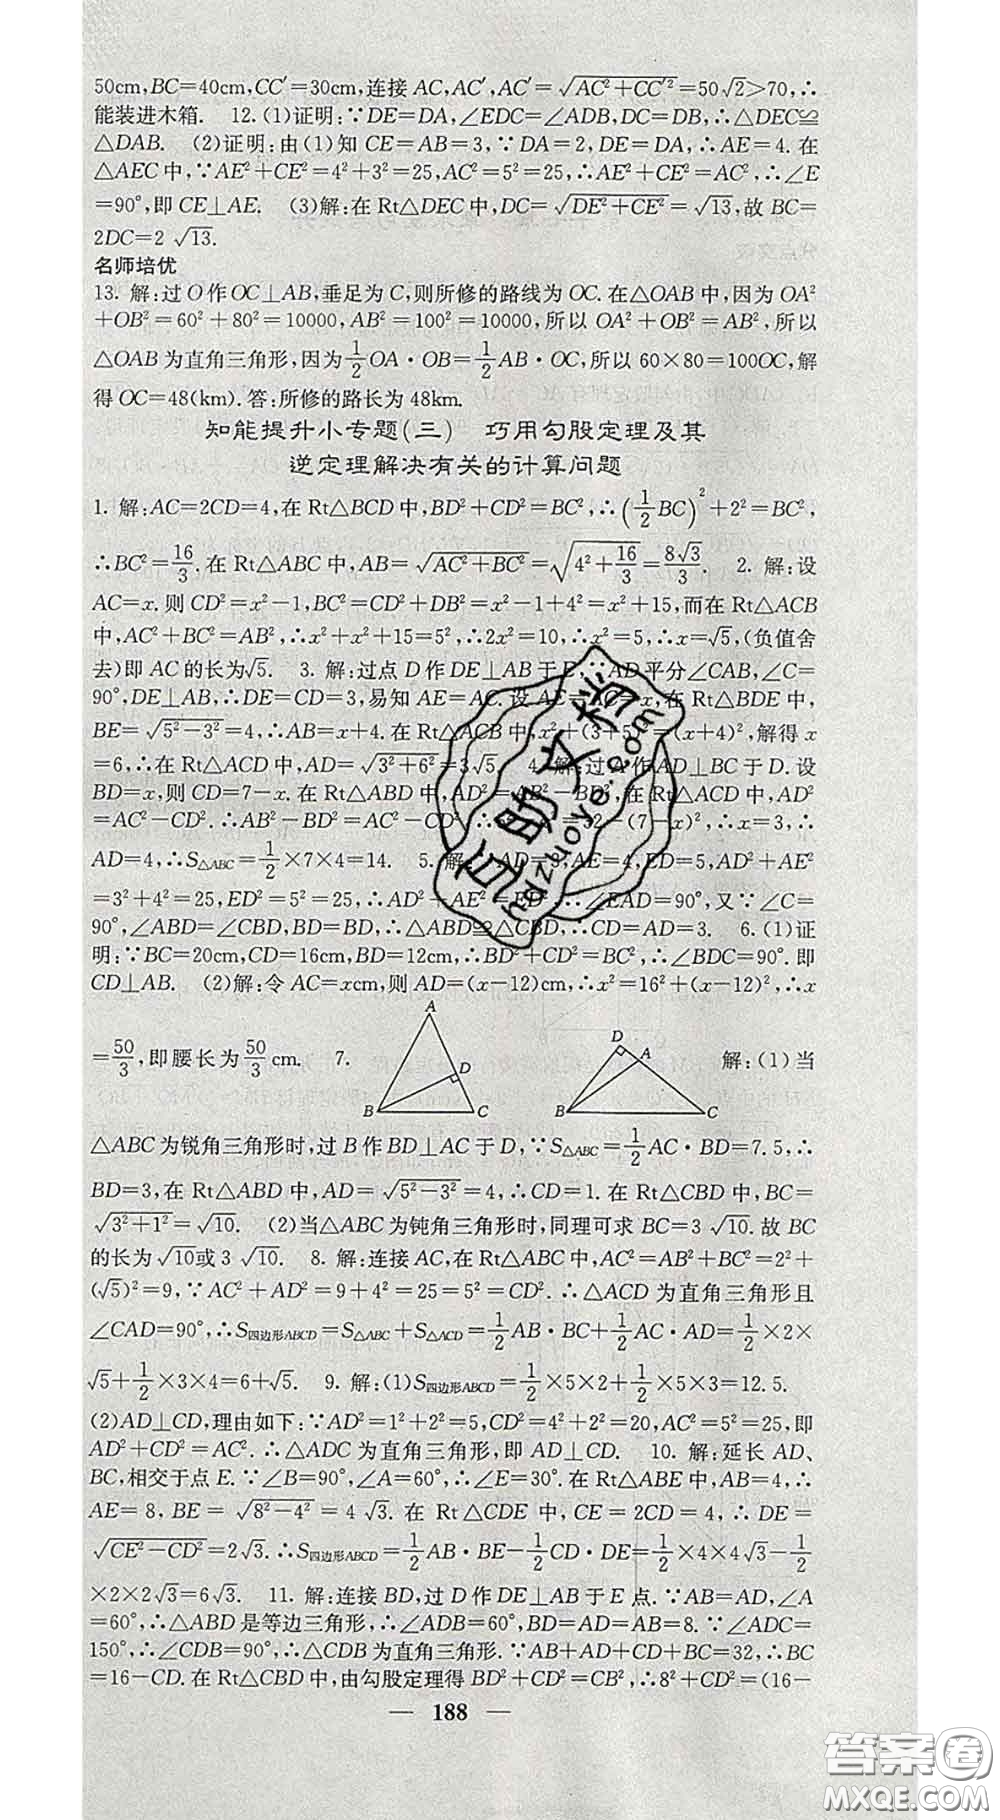 50cm,BC=40cm,CC′=30cm,连接 AC,AC′,AC′=√(AC²+CC′²)=50√2>70,∴
能装进木箱. 12.(1)证明:∵DE=DA,∠EDC=∠ADB,DC=DB,∴△DEC≌
△DAB. (2)证明:由(1)知 CE=AB=3,∵DA=2,DE=DA,∴AE=4.在
△AEC 中,∵AE²+CE²=4²+3²=25,AC²=5²=25,∴AE²+CE²=AC²,∴∠E
=90°,即 CE⊥AE. (3)解:在 Rt△DEC 中,DC=√(DE²+CE²)=√13,故 BC=
2DC=2 √13.
名师培优
13. 解:过 O 作 OC⊥AB,垂足为 C,则所修的路线为 OC.在△OAB 中,因为 OA²
+OB²=60²+80²=10000,AB²=100²=10000,所以 OA²+OB²=AB²,所以
△OAB 为直角三角形,因为 1/2 OA·OB=1/2 AB·OC,所以 60×80=100OC,解
得 OC=48(km).答:所修的路长为 48km.
知能提升小专题(三) 巧用勾股定理及其
逆定理解决有关的计算问题
1. 解:AC=2CD=4,在 Rt△BCD 中,BD²+CD²=BC²,∴(1/2 BC)²+2²=BC²,
∴BC²=16/3.在 Rt△ABC 中,AB=√(AC²+BC²)=√(4²+16/3)=8√3/3. 2. 解:设
AC=x.则 CD²=x²-1,BC²=CD²+DB²=x²-1+4²=x²+15,而在 Rt△ACB
中,AC²+BC²=AB²,∴x²+x²+15=5²,∴2x²=10,∴x²=5,∴x=√5,(负值舍
去)即 AC 的长为√5. 3. 解:过点 D 作 DE⊥AB 于 E,∵AD 平分∠CAB,∠C=
90°,DE⊥AB,∴DE=CD=3,易知 AE=AC.设 AE=AC=x,在 Rt△BDE 中,
BE=√(5²-3²)=4,∴AB=x+4.在 Rt△ACB 中,x²+(3+5)²=(x+4)²,解得 x
=6,∴在 Rt△ACD 中,AD=√(3²+6²)=3√5. 4. 解:过 A 作 AD⊥BC 于 D.设
BD=x,则 CD=7-x.在 Rt△ABD 中,AD²=AB²-BD²,在 Rt△ACD 中,AD²
=AC²-CD².∴AB²-BD²=AC²-CD²,32-(7-x)²,∴x=3,∴
AD=4,∴S△ABC=1/2×7×4=14. 5. 解:AD=3,AE=4,ED=5,AD²+AE²
=3²+4²=25,ED²=5²=25,∴AD²+AE²=ED²,∴∠EAD=90°,又∵∠C=
90°,∠ABD=∠CBD,BD=BD,∴△ABD≌△CBD,∴CD=AD=3. 6.(1)证
明:∵BC=20cm,CD=16cm,BD=12cm,∴BD²+CD²=BC²,∴∠BDC=90°.即
CD⊥AB. (2)解:令 AC=xcm,则 AD=(x-12)cm,∴x²=16²+(x-12)²,∴x
=50/3,即腰长为50/3cm. 7. A B C D D A B C 解:(1)当
△ABC 为锐角三角形时,过 B 作 BD⊥AC 于 D,∵S△ABC=1/2 AC·BD=7.5,∴
BD=3,在 Rt△ABD 中,AD=√(5²-3²)=4,∴CD=1.在 Rt△CBD 中,BC=
√(3²+1²)=√10. (2)当△ABC 为钝角三角形时,同理可求 BC=3 √10.故 BC
的长为√10或 3 √10. 8. 解:连接 AC,在 Rt△ABC 中,AC²=AB²+BC²=2²+
(√5)²=9,∵AC²+AD²=9+4²=25=5²=CD².∴△ACD 为直角三角形且
∠CAD=90°,∴S四边形ABCD=S△ABC+S△ACD=1/2 AB·BC+1/2 AC·AD=1/2×2×
√5+1/2×3×4=6+√5. 9. 解:(1)S四边形ABCD=1/2×5×2+1/2×5×3=12.5.
(2)AD⊥CD,理由如下:∵AD²=1²+2²=5,CD²=4²+2²=20,AC²=5²=25,即
AD²+CD²=AC².∴△ADC 为直角三角形,即 AD⊥CD. 10. 解:延长 AD、
BC,相交于点 E.∵∠B=90°,∠A=60°,∴∠E=30°.在 Rt△ABE 中,AB=4,∴
AE=8,BE=√(8²-4²)=4 √3.在 Rt△CDE 中,CE=2CD=4,∴DE=
√(CE²-CD²)=2√3.∴S四边形ABCD=1/2 AB·BE-1/2 CD·DE=1/2×4×4√3-1/2
×2×2√3=6√3. 11. 解:连接 BD,过 D 作 DE⊥AB 于 E 点.∵AB=AD,∠A
=60°,∴△ABD 是等边三角形,∴∠ADB=60°,BD=AD=AB=8.∵∠ADC=
150°,∴∠CDB=90°,∴△CDB 为直角三角形.∵AB+AD+CD+BC=32,∴BC
=16-CD.在 Rt△CBD 中,由勾股定理得 BD²+CD²=CB²,∴8²+CD²=(16-
— 188 —
互助文档
hdzuoye.com
答案圈
MXQE.COM